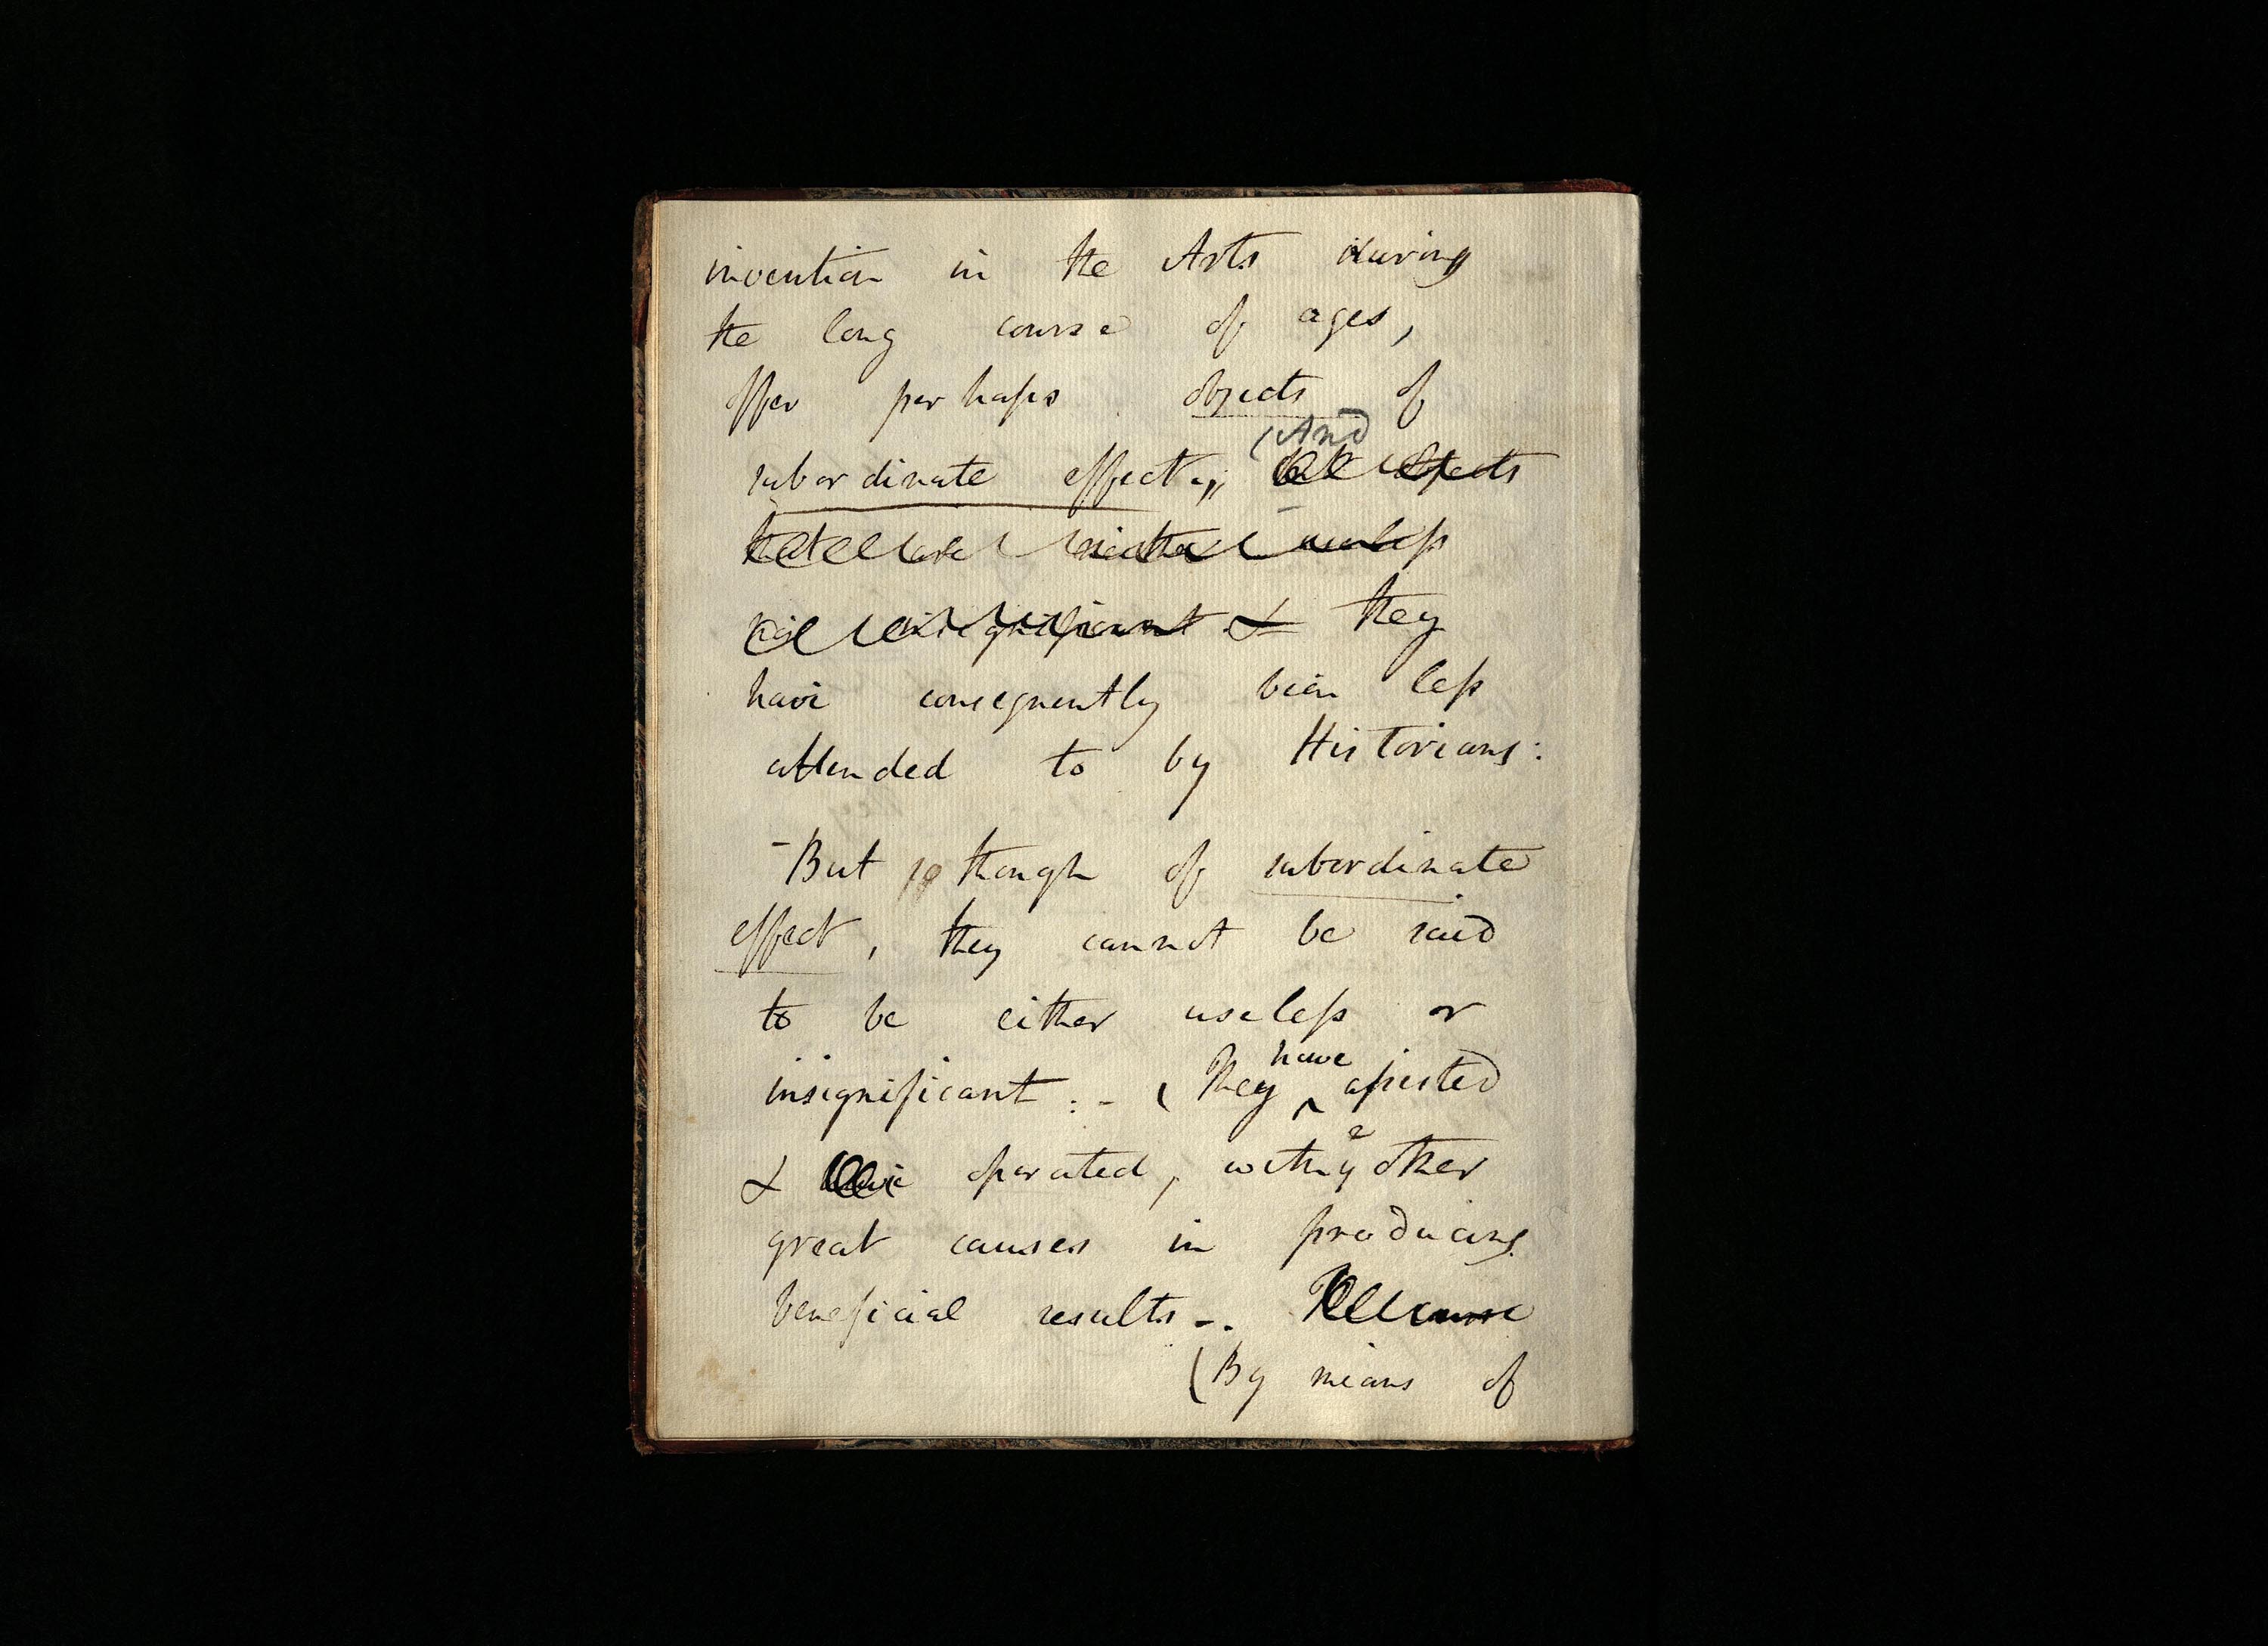 invention in the Arts during
the long course of ages,
offer perhaps objects of
(And
subordinate effect; but objects
that are neither useless
nor insignificant & they
have consequently been less
attended to by Historians:
- But though of subordinate
effect, they cannot be said
to be either useless or
have
insignificant: - (They ^ assisted
& have operated, with yᵉ other
great causes in producing
beneficial results -. 
(By means of